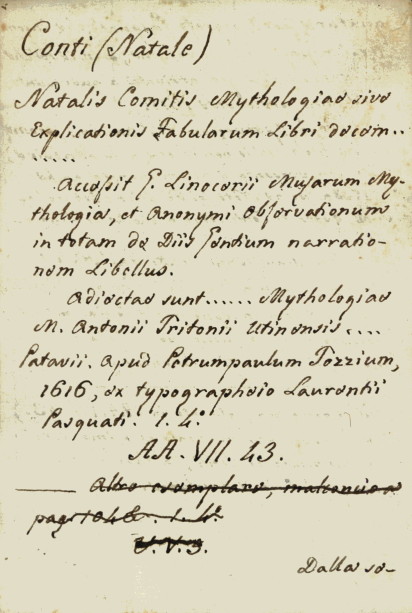 Conti (Natale)
Natalis Comitis Mythologiae sive
Explicationis Fabularum Libri decem..
.....
Accessit G. Linocerii Musarum My-
thologia, et Anonymi Observationum
in totam de Diis Gentium narratio-
nem Libellus.
Adiectae sunt...... Mythologiae
M. Antonii Tritonii Utinensis....
Patavii. Apud Petrumpaulum Tozzium,
1616, ex typographeio Laurentii
Pasquati. 1. 4°
AA. VII. 43.
Altro esemplare, mancante
pag. 1. 4°
V. 3.
Dalla se-